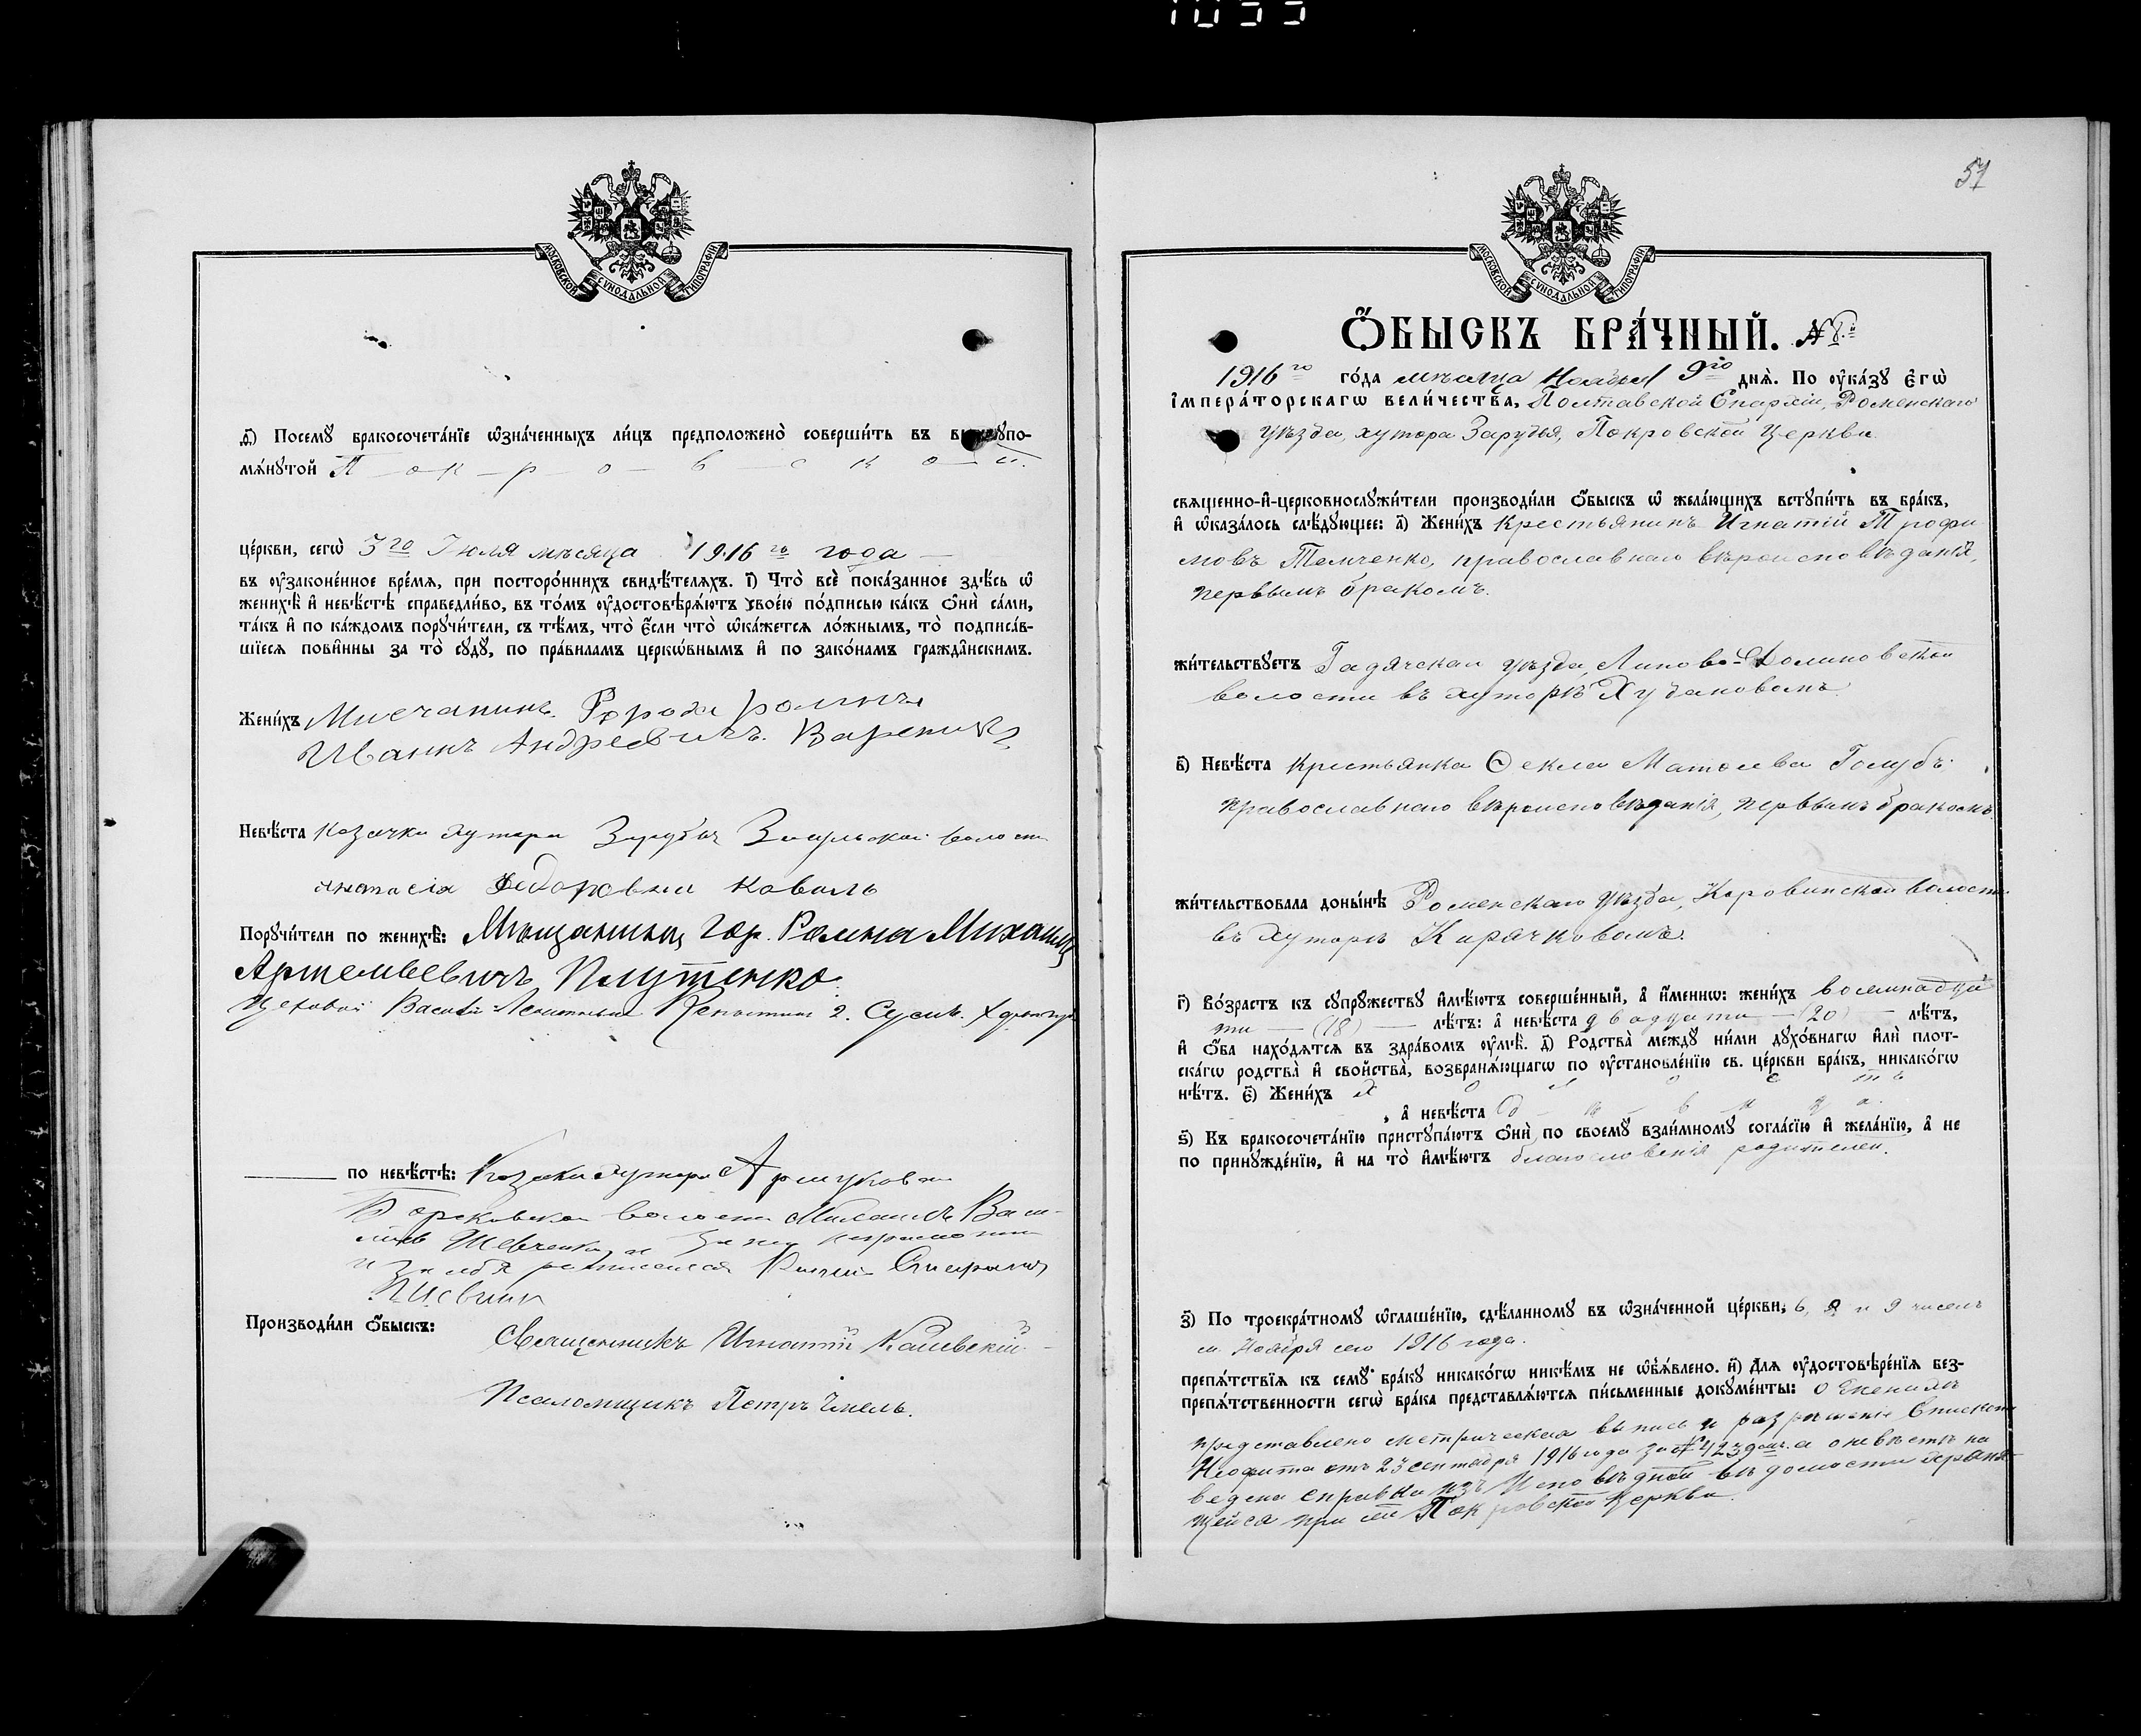 1033
МОСКОВСКОЙ СѴНОДАЛЬНОЙ ТИПОГРАФІИ
ѳ҃) Посемꙋ̀ бракосочета́нїе ѡ҆зна́ченныхъ ли́цъ предположено̀ соверши́ть въ
мѧ́нꙋтой П о к р о в с к о й.
це́ркви, сегѡ̀ 3го Іюля мѣсяца 1916 го года
въ ᲂу҆зако́ненное вре́мѧ, при посторо́ннихъ свидѣ́телѧхъ. і҃) Что̀ всѐ пока́занное здѣ́сь ѡ҆
женихѣ̀ и҆ невѣ́стѣ справедли́во, въ то́мъ ᲂу҆достовѣрѧ́ютъ свое́ю по́дписью ка́къ ѻ҆нѝ са́ми,
та́къ и҆ по ка́ждомъ порꙋчи́тели, съ тѣ́мъ, что̀ є҆́сли что̀ ѡ҆ка́жетсѧ ло́жнымъ, то̀ подписа́в-
шїесѧ пови́нны за то̀ сꙋдꙋ̀, по пра́виламъ церко́внымъ и҆ по зако́намъ гражда̂нскимъ.
Жени́хъ Мисчанинъ Города ромнъ
Иванъ Андреевичъ Вареникъ
Невѣ́ста Козачка хутора Зарубья Засульской волости
Анотасія Федоровна Коваль
Порꙋчи́тели по женихѣ̀: Мѣщанинъ гор. Ромна Михаилъ
Артемьевичъ Плутенко
Цеховой Василій г. Сумъ.
по невѣ́стѣ: Козаки хутора
волости Михаилъ Васи-
льев Шевченко и
и за себя
Производи́ли ѻ҆́быскъ:
Священникъ Игнатій
Псаломщикъ Петръ Чмель.
57
МОСКОВСКОЙ СѴНОДАЛЬНОЙ ТИПОГРАФІИ
Ѻ҆́БЫСКЪ БРА́ЧНЫЙ. № 8.й
1916 го го́да мѣсяца Ноября 9го днѧ̀. По ᲂу҆ка́зꙋ є҆гѡ̀
і҆мпера́торскагѡ вели́чества, Полтавской Епархіи, Роменскаго
уѣзда, хутора Зарубья, Покровской церкви
свѧще́нно-и҆-церковнослꙋжи́тели производи́ли ѻ҆́быскъ ѡ҆ жела́ющихъ встꙋпи́ть въ бра́къ,
и҆ ѡ҆каза́лось слѣ́дꙋющее: а҃) Жени́хъ крестьянинъ Игнатій Трофи
мовъ Темченко, православнаго вѣроисповѣданія,
первымъ бракомъ.
жи́тельствꙋетъ Гадячскаго уѣзда, Липово-Долиновской
волости въ хуторѣ
в҃) Невѣ́ста крестьянка Ѳекла Матѳеева Голубъ
православнаго вѣроисповѣданія, первымъ бракомъ.
жи́тельствовала доны́нѣ Роменскаго уѣзда, Коровинской волости
въ хуторѣ Кирячковомъ.
г҃) Во́зрастъ къ сꙋпрꙋ́жествꙋ и҆мѣ́ютъ соверше́нный, а҆ и҆́меннѡ: жени́хъ восемнадца
ти — (18) — лѣ́тъ: а҆ невѣ́ста двадцати — (20) — лѣ́тъ,
и҆ ѻ҆́ба нахо́дѧтсѧ въ здра́вомъ ᲂу҆мѣ̀. д҃) Родства̀ междꙋ ни́ми дꙋхо́внагѡ и҆лѝ пло́т-
скагѡ родства̀ и҆ сво́йства, возбранѧ́ющагѡ по ᲂу҆становле́нїю св. це́ркви бра́къ, никако́гѡ
нѣ́тъ. є҃) Жени́хъ х о л о с т ъ
, а҆ невѣ́ста д ѣ в и ц а.
ѕ҃) Къ бракосочета́нїю пристꙋпа́ютъ ѻ҆нѝ по своемꙋ̀ взаи́мномꙋ согла́сїю и҆ жела́нїю, а҆ не
по принꙋжде́нїю, и҆ на то̀ и҆мѣ́ютъ благословенія родителей.
з҃) По троекра́тномꙋ ѡ҆глаше́нїю, сдѣ́ланномꙋ въ ѡ҆зна́ченной це́ркви, 6, 8 и 9 чиселъ
м. Ноября сего 1916 года.
препѧ́тствїѧ къ семꙋ̀ бра́кꙋ никако́гѡ никѣ́мъ не ѡ҆б̾ѧ́влено. и҃) Длѧ ᲂу҆достовѣре́нїѧ без-
препѧ́тственности сегѡ̀ бра́ка представлѧ́ютсѧ пи́сьменные докꙋме́нты: о женихѣ
представлено метрическая выпись и разрѣшеніе Епископа
Неофита отъ 23 сентября 1916 года за № 423 а о невѣстѣ на
ведена справка изъ Исповѣдной вѣдомости храня
щейся при сей Покровской церкви.